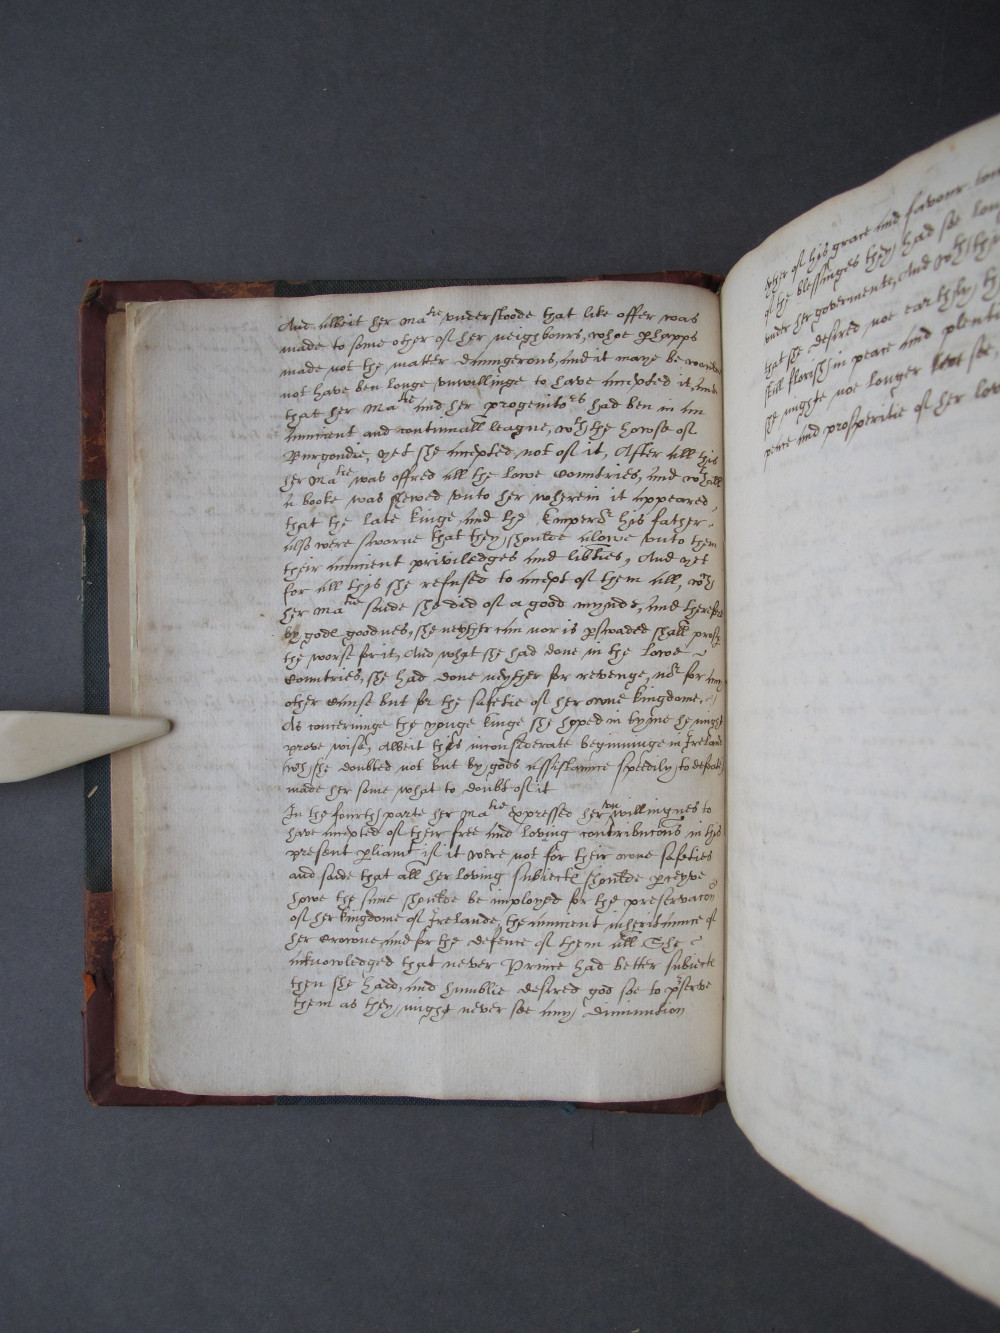 And albeit her Ma^tie understoode that like offer was
made to some other of her neighbours, whoe phapps
made not the matter daungerous, and it maye be would
not have ben longe unwillinge to have accepted it, and
that her Ma^tie and her progenito^rs had ben in an
auncient and contynuall league, w^th the howse of
Burgondie, yet she accepted not of it, After all this
her Ma^tie was offred all the lowe Countries, and w^thall
a booke was shewed unto her wherein it appeared,
that the late kinge and the Empero^r his father
also were sworne that they shoulde alowe unto them
their auncient priviledges and libties, And yet
for all this she refused to accept of them all, w^ch
her Ma^tie saide she did of a good mynde, and therefore
by gods goodnes, she neyther can nor is pswaded shall
the worse for it, And what she had done in the Lowe
Countries, she had done neyther for revenge, nor for any
other cause but for the safetie of her owne kingdome,
As concerninge the yonge kinge she hoped in tyme he might
prove wise, Albeit this inconsiderate beginninge in Irelande
w^ch she doubted not but by gods assistaunce speedily to defeate
made her some what to doubt of it
In the fourth parte her Ma^tie expressed her unwillingnes to
have accepted of their free and loving contribucons in this
present pliamt if it were not for their owne safeties
and saide that all her loving subiects shoulde pceyve
howe the same shoulde be imployed for the preservacon
of her kingdome of Irelande, the auncient inheritaunce of
her Crowne, and for the defence of them all She
acknowledged that never Prince had better subiects
then she hadd, and humblie desired god soe to pserve
them as they might never see any diminution
other of his grace and favour
of the blessinges they had soe
under her govermente, And w^th
that she desired noe earthly
still florish in peace and plenti
she might noe longer see
peace and prosperitie of her